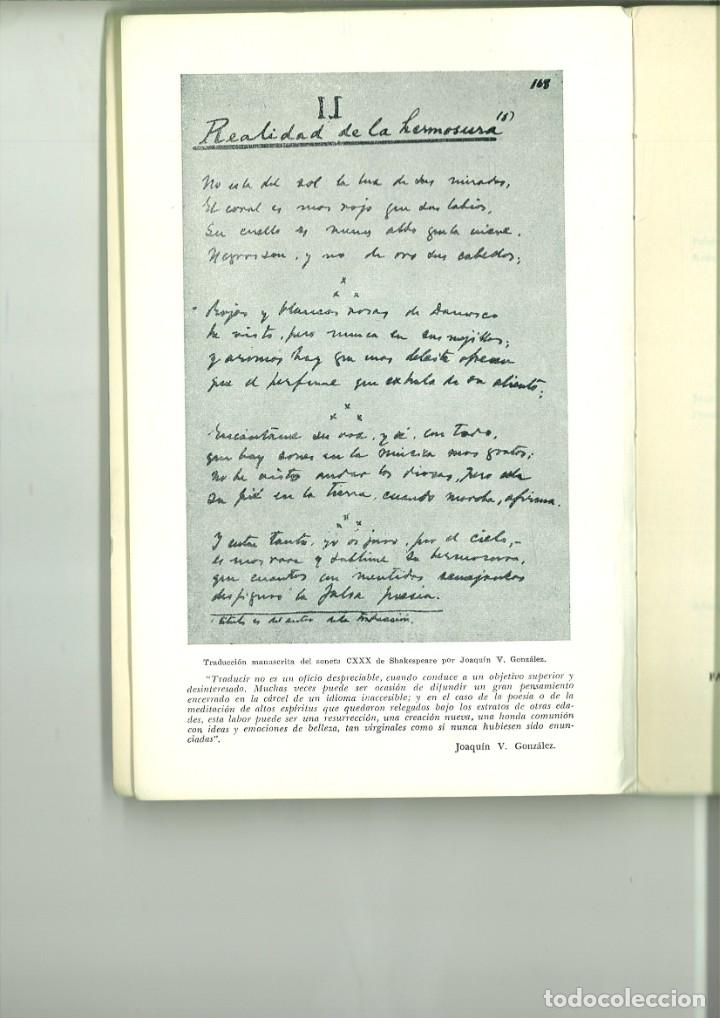 168
II
Realidad de la hermosura (1)
No es la del sol la luz de sus miradas,
El coral es mas rojo que sus labios,
Su cuello es menos albo que la nieve,
Negros son, y no de oro sus cabellos;
Rojas y blancas rosas de Damasco
he visto, pero nunca en sus mejillas;
y aromas hay que mas deleite ofrecen
que el perfume que exhala de su aliento;
Encántame su voz, y sé, con todo,
que hay sones en la música mas gratos;
No he visto andar las diosas, pero ella
su pié en la tierra, cuando marcha, afirma.
Y entre tanto, yo os juro, por el cielo,-
es mas rara y sublime su hermosura,
que cuantas con mentidas semejanzas
desfiguró la falsa poesia.
título es del autor de la traducción.
Traducción manuscrita del soneto CXXX de Shakespeare por Joaquín V. González.
"Traducir no es un oficio despreciable, cuando conduce a un objetivo superior y
desinteresado. Muchas veces puede ser ocasión de difundir un gran pensamiento
encerrado en la cárcel de un idioma inaccesible; y en el caso de la poesía o de la
meditación de altos espíritus que quedaron relegados bajo los estratos de otras eda-
des, esta labor puede ser una resurrección, una creación nueva, una honda comunión
con ideas y emociones de belleza, tan virginales como si nunca hubiesen sido enun-
ciadas".
Joaquín V. González.
todocoleccion